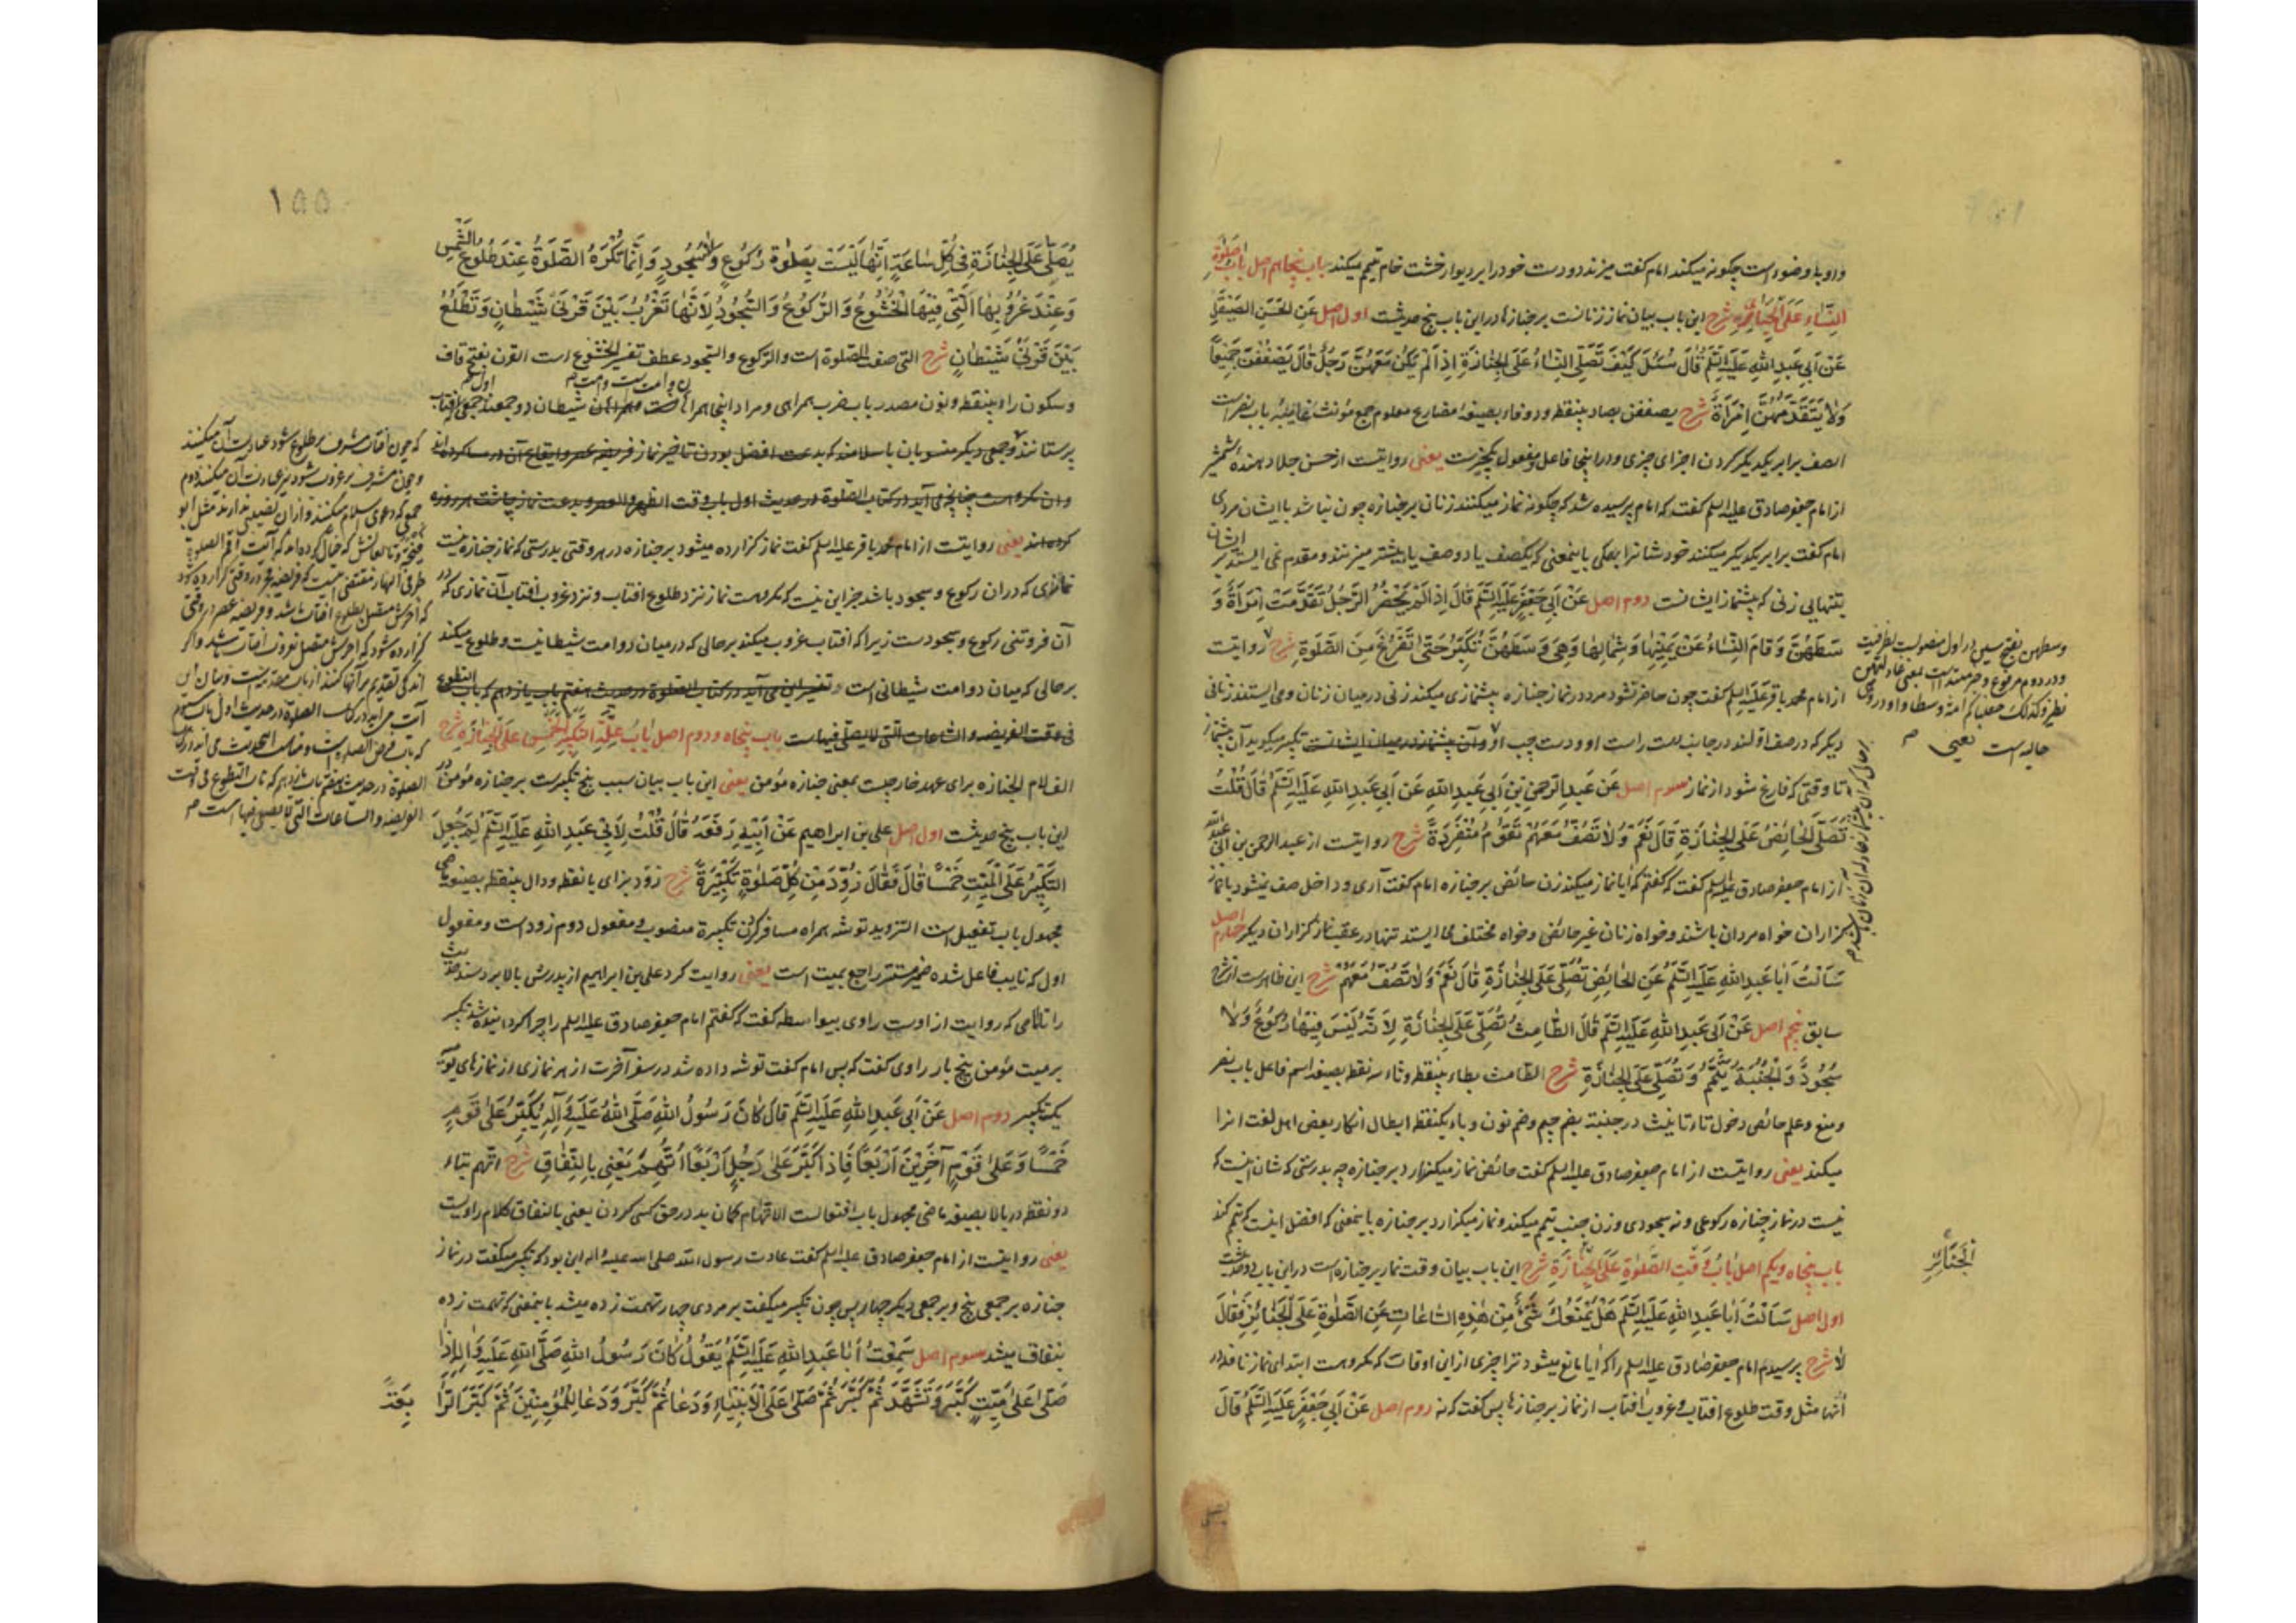 و او با وضوء است چگونه میکند امام گفت میزند دو دست خود را بر دیوار خشت خام تیمم میکند باب پنجاهم اصل باب صلوة
النِّسَاءِ عَلَى الْجَنَازَةِ شرح این باب بیان نماز زنانست بر جنازها درین باب پنج حدیثست اول اصل عَنِ الْحَسَنِ الصَّيْقَلِ
عَنْ أَبِي عَبْدِ اللهِ عَلَيْهِ السَّلَمُ قَالَ سُئِلَ كَيْفَ تُصَلِّي النِّسَاءُ عَلَى الْجِنَازَةِ إِذَا لَمْ يَكُنْ مَعَهُنَّ رَجُلٌ قَالَ يَصْفُفْنَ جَمِيعًا
وَلَا يَتَقَدَّمُهُنَّ امْرَأَةٌ شرح یصففن بصاد بینقطه و دو فاء بصیغهٔ مضارع معلوم جمع مؤنث غائبهٔ باب نصر است
الصف برابر یکدیگر کردن اجزای چیزی و در اینجا فاعل و مفعول یکچیزست یعنی روایتست از حسن جلا دهندهٔ شمشیر
از امام جعفر صادق علیه السلم گفت که امام پرسیده شد که چگونه نماز میکنند زنان بر جنازه چون نباشد با ایشان مردی
امام گفت برابر یکدیگر میکنند خودشانرا همگی باینمعنی که یکصف یا دو صف یا بیشتر میزنند و مقدم نمی ایستد بر ایشان
بتنهایی زنی که پیشنماز ایشانست دوم اصل عَنْ أَبِي جَعْفَرٍ عَلَيْهِ السَّلَمُ قَالَ إِذَا لَمْ يَحْضُرِ الرَّجُلُ تَقَدَّمَتِ امْرَأَةٌ وَ
سَطَهُنَّ وَقَامَ النِّسَاءُ عَنْ يَمِينِهَا وَشِمَالِهَا وَهِيَ وَسَطَهُنَّ تُكَبِّرُ حَتَّى تَفْرُغَ مِنَ الصَّلَوةِ شرح روایتست
از امام محمد باقر علیه السلم گفت چون حاضر نشود مرد در نماز جنازه پیشنمازی میکند زنی در میان زنان و می ایستند زنانی
دیگر که در صف اولند در جانب دست راست او و دست چپ او و آن پیشنماز در میان ایشانست تکبیر میگوید آن پیشنماز
تا وقتی که فارغ شود از نماز سوم اصل عَنْ عَبْدِ الرَّحْمٰنِ بْنِ أَبِي عَبْدِ اللهِ عَنْ أَبِي عَبْدِ اللهِ عَلَيْهِ السَّلَمُ قَالَ قُلْتُ
تُصَلِّي الْحَائِضُ عَلَى الْجِنَازَةِ قَالَ نَعَمْ وَلَا تَصُفُّ مَعَهُمْ تَقُومُ مُنْفَرِدَةً شرح روایتست از عبد الرحمن بن ابی عبد الله
از امام جعفر صادق علیه السلم گفت که گفتم که آیا نماز میکند زن حائض بر جنازه امام گفت آری و داخل صف نمیشود با نماز
گزاران خواه مردان باشند و خواه زنان غیر حائض و خواه مختلف می ایستد تنها در عقب نماز گزاران دیگر چهارم اصل
سَأَلْتُ أَبَا عَبْدِ اللهِ عَلَيْهِ السَّلَمُ عَنِ الْحَائِضِ تُصَلِّي عَلَى الْجِنَازَةِ قَالَ نَعَمْ وَلَا تَصُفُّ مَعَهُمْ شرح این ظاهر است از شرح
سابق پنجم اصل عَنْ أَبِي عَبْدِ اللهِ عَلَيْهِ السَّلَمُ قَالَ الطَّامِثُ تُصَلِّي عَلَى الْجِنَازَةِ لِأَنَّهُ لَيْسَ فِيهَا رُكُوعٌ وَلَا
سُجُودٌ وَالْجُنُبَةُ تَتَيَمَّمُ وَتُصَلِّي عَلَى الْجِنَازَةِ شرح الطامث بطاء بینقطه و ثاء سه نقطه بصیغهٔ اسم فاعل باب نصر
و منع و علم حائض دخول تاء تأنیث در جنبة بضم جیم و ضم نون و باء یکنقطه ابطال انکار بعض اهل لغت انرا
میکند یعنی روایتست از امام جعفر صادق علیه السلم گفت حائض نماز میگزارد بر جنازه چه بدرستی که شان اینست که
نیست در نماز جنازه رکوعی و نه سجودی و زن جنب تیمم میکند و نماز میگزارد بر جنازه باینمعنی که افضل اینست که تیمم کند
باب پنجاه و یکم اصل بَابُ وَقْتِ الصَّلٰوةِ عَلَى الْجَنَازَةِ شرح این باب بیان وقت نماز بر جنازه است درین باب دو حدیثست
اول اصل سَأَلْتُ أَبَا عَبْدِ اللهِ عَلَيْهِ السَّلَمُ هَلْ يَمْنَعُكَ شَيْءٌ مِنْ هٰذِهِ السَّاعَاتِ عَنِ الصَّلٰوةِ عَلَى الْجَنَائِزِ فَقَالَ
لَا شرح پرسیدم امام جعفر صادق علیه السلم را که آیا مانع میشود ترا چیزی از این اوقات که مکروهست ابتدای نماز نافله در
آنها مثل وقت طلوع افتاب و غروب افتاب از نماز بر جنازها پس گفت که نه دوم اصل عَنْ أَبِي جَعْفَرٍ عَلَيْهِ السَّلَمُ قَالَ
وسطهن بفتح سین در اول منصوبست بظرفیت
و در دوم مرفوع و خبر مبتداست بمعنی عادلتهن
نظیر و کذلک جعلناکم امة وسطا و واو در وهی
حالیه است یعنی
الْجَنَائِزِ
۱۵۵
يُصَلَّى عَلَى الْجِنَازَةِ فِي كُلِّ سَاعَةٍ إِنَّهَا لَيْسَتْ بِصَلٰوةِ رُكُوعٍ وَلَا سُجُودٍ وَإِنَّمَا تُكْرَهُ الصَّلٰوةُ عِنْدَ طُلُوعِ الشَّمْسِ
وَعِنْدَ غُرُوبِهَا الَّتِي فِيهَا الْخُشُوعُ وَالرُّكُوعُ وَالسُّجُودُ لِأَنَّهَا تَغْرُبُ بَيْنَ قَرْنَيْ شَيْطَانٍ وَتَطْلُعُ
بَيْنَ قَرْنَيْ شَيْطَانٍ شرح التی صفت الصلوة است و الرکوع و السجود عطف تفسیر الخشوع است القرن بفتح قاف
و سکون راء بینقطه و نون مصدر باب ضرب همراهی و مراد اینجا همراهان شیطان دو جمعند اول جمعی آفتاب
پرستانند و جمعی دیگر منسوبان باسلامند که بدعت افضل بودن تاخیر نماز فریضه عصر و ایقاع آن در
و ان مکروهست چنانچه می آید در کتاب الصلوة در حدیث اول باب وقت الظهر و العصر و بدعت نماز چاشت هر روزه
کرده‌اند یعنی روایتست از امام محمد باقر علیه السلم گفت نماز گزارده میشود بر جنازه در هر وقتی بدرستی که نماز جنازه نیست
نمازی که در ان رکوع و سجود باشد جز این نیست که مکروهست نماز نزد طلوع افتاب و نزد غروب افتاب آن نمازی که در
آن فروتنی رکوع و سجودست زیرا که افتاب غروب میکند بر حالی که در میان دو امت شیطانیست و طلوع میکند
بر حالی که میان دو امت شیطانی است و تفسیر این می آید در کتاب الصلوة در حدیث هفتم باب یازدهم که باب التطوع
فی وقت الفریضه و الساعات التی لا یصلی فیها ست باب پنجاه و دوم اصل بَابُ عِلَّةِ تَكْبِيرِ الْخَمْسِ عَلَى الْجَنَازَةِ شرح
الف لام الجنازه برای عهد خارجیست بمعنی جنازه مؤمن یعنی این باب بیان سبب پنج تکبیرست بر جنازه مؤمن در
این باب پنج حدیثست اول اصل علی بن ابراهیم عَنْ أَبِيهِ رَفَعَهُ قَالَ قُلْتُ لِأَبِي عَبْدِ اللهِ عَلَيْهِ السَّلَمُ لِمَ جُعِلَ
التَّكْبِيرُ عَلَى الْمَيِّتِ خَمْسًا قَالَ فَقَالَ زُوِّدَ مِنْ كُلِّ صَلٰوةٍ تَكْبِيرَةً شرح زود بزای با نقطه و دال بینقطه بصیغهٔ ماضی
مجهول باب تفعیل است التزوید توشه همراه مسافر کردن تکبیرة منصوب و مفعول دوم زود است و مفعول
اول که نایب فاعل شده ضمیر مستتر راجع بمیت است یعنی روایت کرد علی بن ابراهیم از پدرش بالا برد سند حدیث
را تا امامی که روایت از اوست راوی بیواسطه گفت که گفتم امام جعفر صادق علیه السلم را چرا گردانیده شد تکبیر
بر میت مؤمن پنج بار راوی گفت که پس امام گفت توشه داده شد در سفر آخرت از هر نمازی از نمازهای یومیه
یک تکبیر دوم اصل عَنْ أَبِي عَبْدِ اللهِ عَلَيْهِ السَّلَمُ قَالَ كَانَ رَسُولُ اللهِ صَلَّى اللهُ عَلَيْهِ وَآلِهِ يُكَبِّرُ عَلَى قَوْمٍ
خَمْسًا وَعَلَى قَوْمٍ آخَرِينَ أَرْبَعًا فَإِذَا كَبَّرَ عَلَى رَجُلٍ أَرْبَعًا اتُّهِمَ يَعْنِي بِالنِّفَاقِ شرح اتهم بتاء
دو نقطه در بالا بصیغه ماضی مجهول باب افتعالست الاتهام گمان بد در حق کسی کردن یعنی بالنفاق کلام راویست
یعنی روایتست از امام جعفر صادق علیه السلم گفت عادت رسول الله صلی الله علیه و اله این بود که تکبیر میگفت در نماز
جنازه بر جمعی پنج و بر جمعی دیگر چهار پس چون تکبیر میگفت بر مردی چهار تهمت زده میشد باینمعنی که تهمت زده
بنفاق میشد سوم اصل سَمِعْتُ أَبَا عَبْدِ اللهِ عَلَيْهِ السَّلَمُ يَقُولُ كَانَ رَسُولُ اللهِ صَلَّى اللهُ عَلَيْهِ وَآلِهِ إِذَا
صَلَّى عَلَى مَيِّتٍ كَبَّرَ وَتَشَهَّدَ ثُمَّ كَبَّرَ ثُمَّ صَلَّى عَلَى الْأَنْبِيَاءِ وَدَعَا ثُمَّ كَبَّرَ وَدَعَا لِلْمُؤْمِنِينَ ثُمَّ كَبَّرَ الرَّا
بِعَةَ
که چون آفتاب مشرف بر طلوع شود عبادت آن میکنند
و چون مشرف بر غروب شود نیز عبادت آن میکنند دوم
جمعی که دعوی اسلام میکنند و از ان نصیبی ندارند مثل ابو
که خیال کرده‌اند که آیت اقم الصلوة
طرفی النهار مقتضی اینست که فریضه فجر در وقتی گزارده شود
که آخرش متصل بطلوع افتاب باشد و فریضه عصر در وقتی
گزارده شود که آخرش متصل بغروب افتاب باشد و اگر
اندکی تقدیم بر آنها کنند
آیت می آید در کتاب الصلوة در حدیث اول باب سوم
که باب فرض الصلوة است
الصلوة در حدیث هفتم باب یازدهم که باب التطوع فی وقت
الفریضه و الساعات التی لا یصلی فیها است